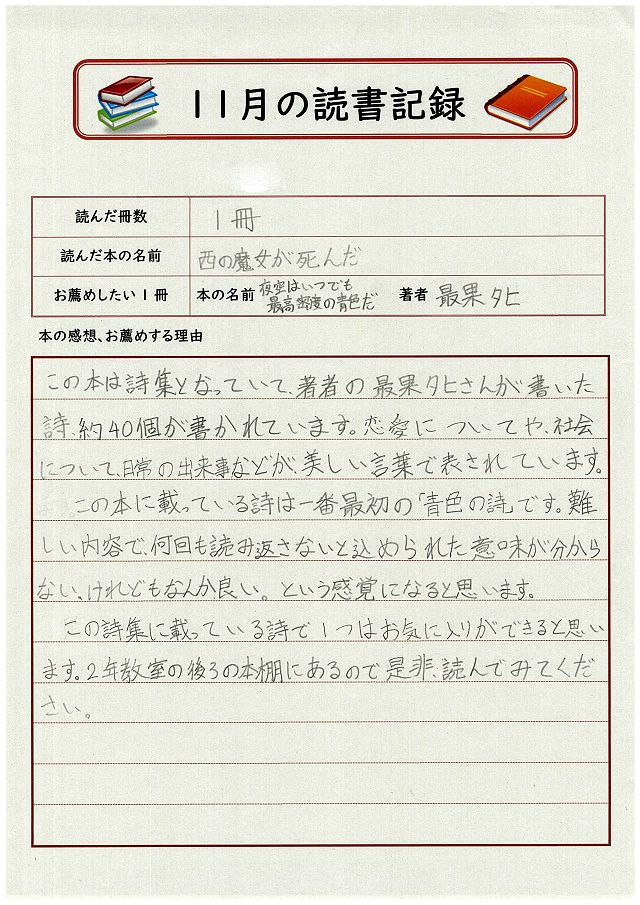 11月の読書記録
読んだ冊数 1冊
読んだ本の名前 西の魔女が死んだ
お薦めしたい1冊 本の名前 夜空はいつでも 最高密度の青色だ 著者 最果タヒ
本の感想、お薦めする理由
この本は詩集となっていて、著者の最果タヒさんが書いた
詩、約40個が書かれています。恋愛についてや、社会
について、日常の出来事などが、美しい言葉で表されています。
この本に載っている詩は一番最初の「青色の詩」です。難
しい内容で、何回も読み返さないと込められた意味が分から
ない、けれどもなんか良い。という感覚になると思います。
この詩集に載っている詩で1つはお気に入りができると思い
ます。2年教室の後ろの本棚にあるので是非、読んでみてくだ
さい。